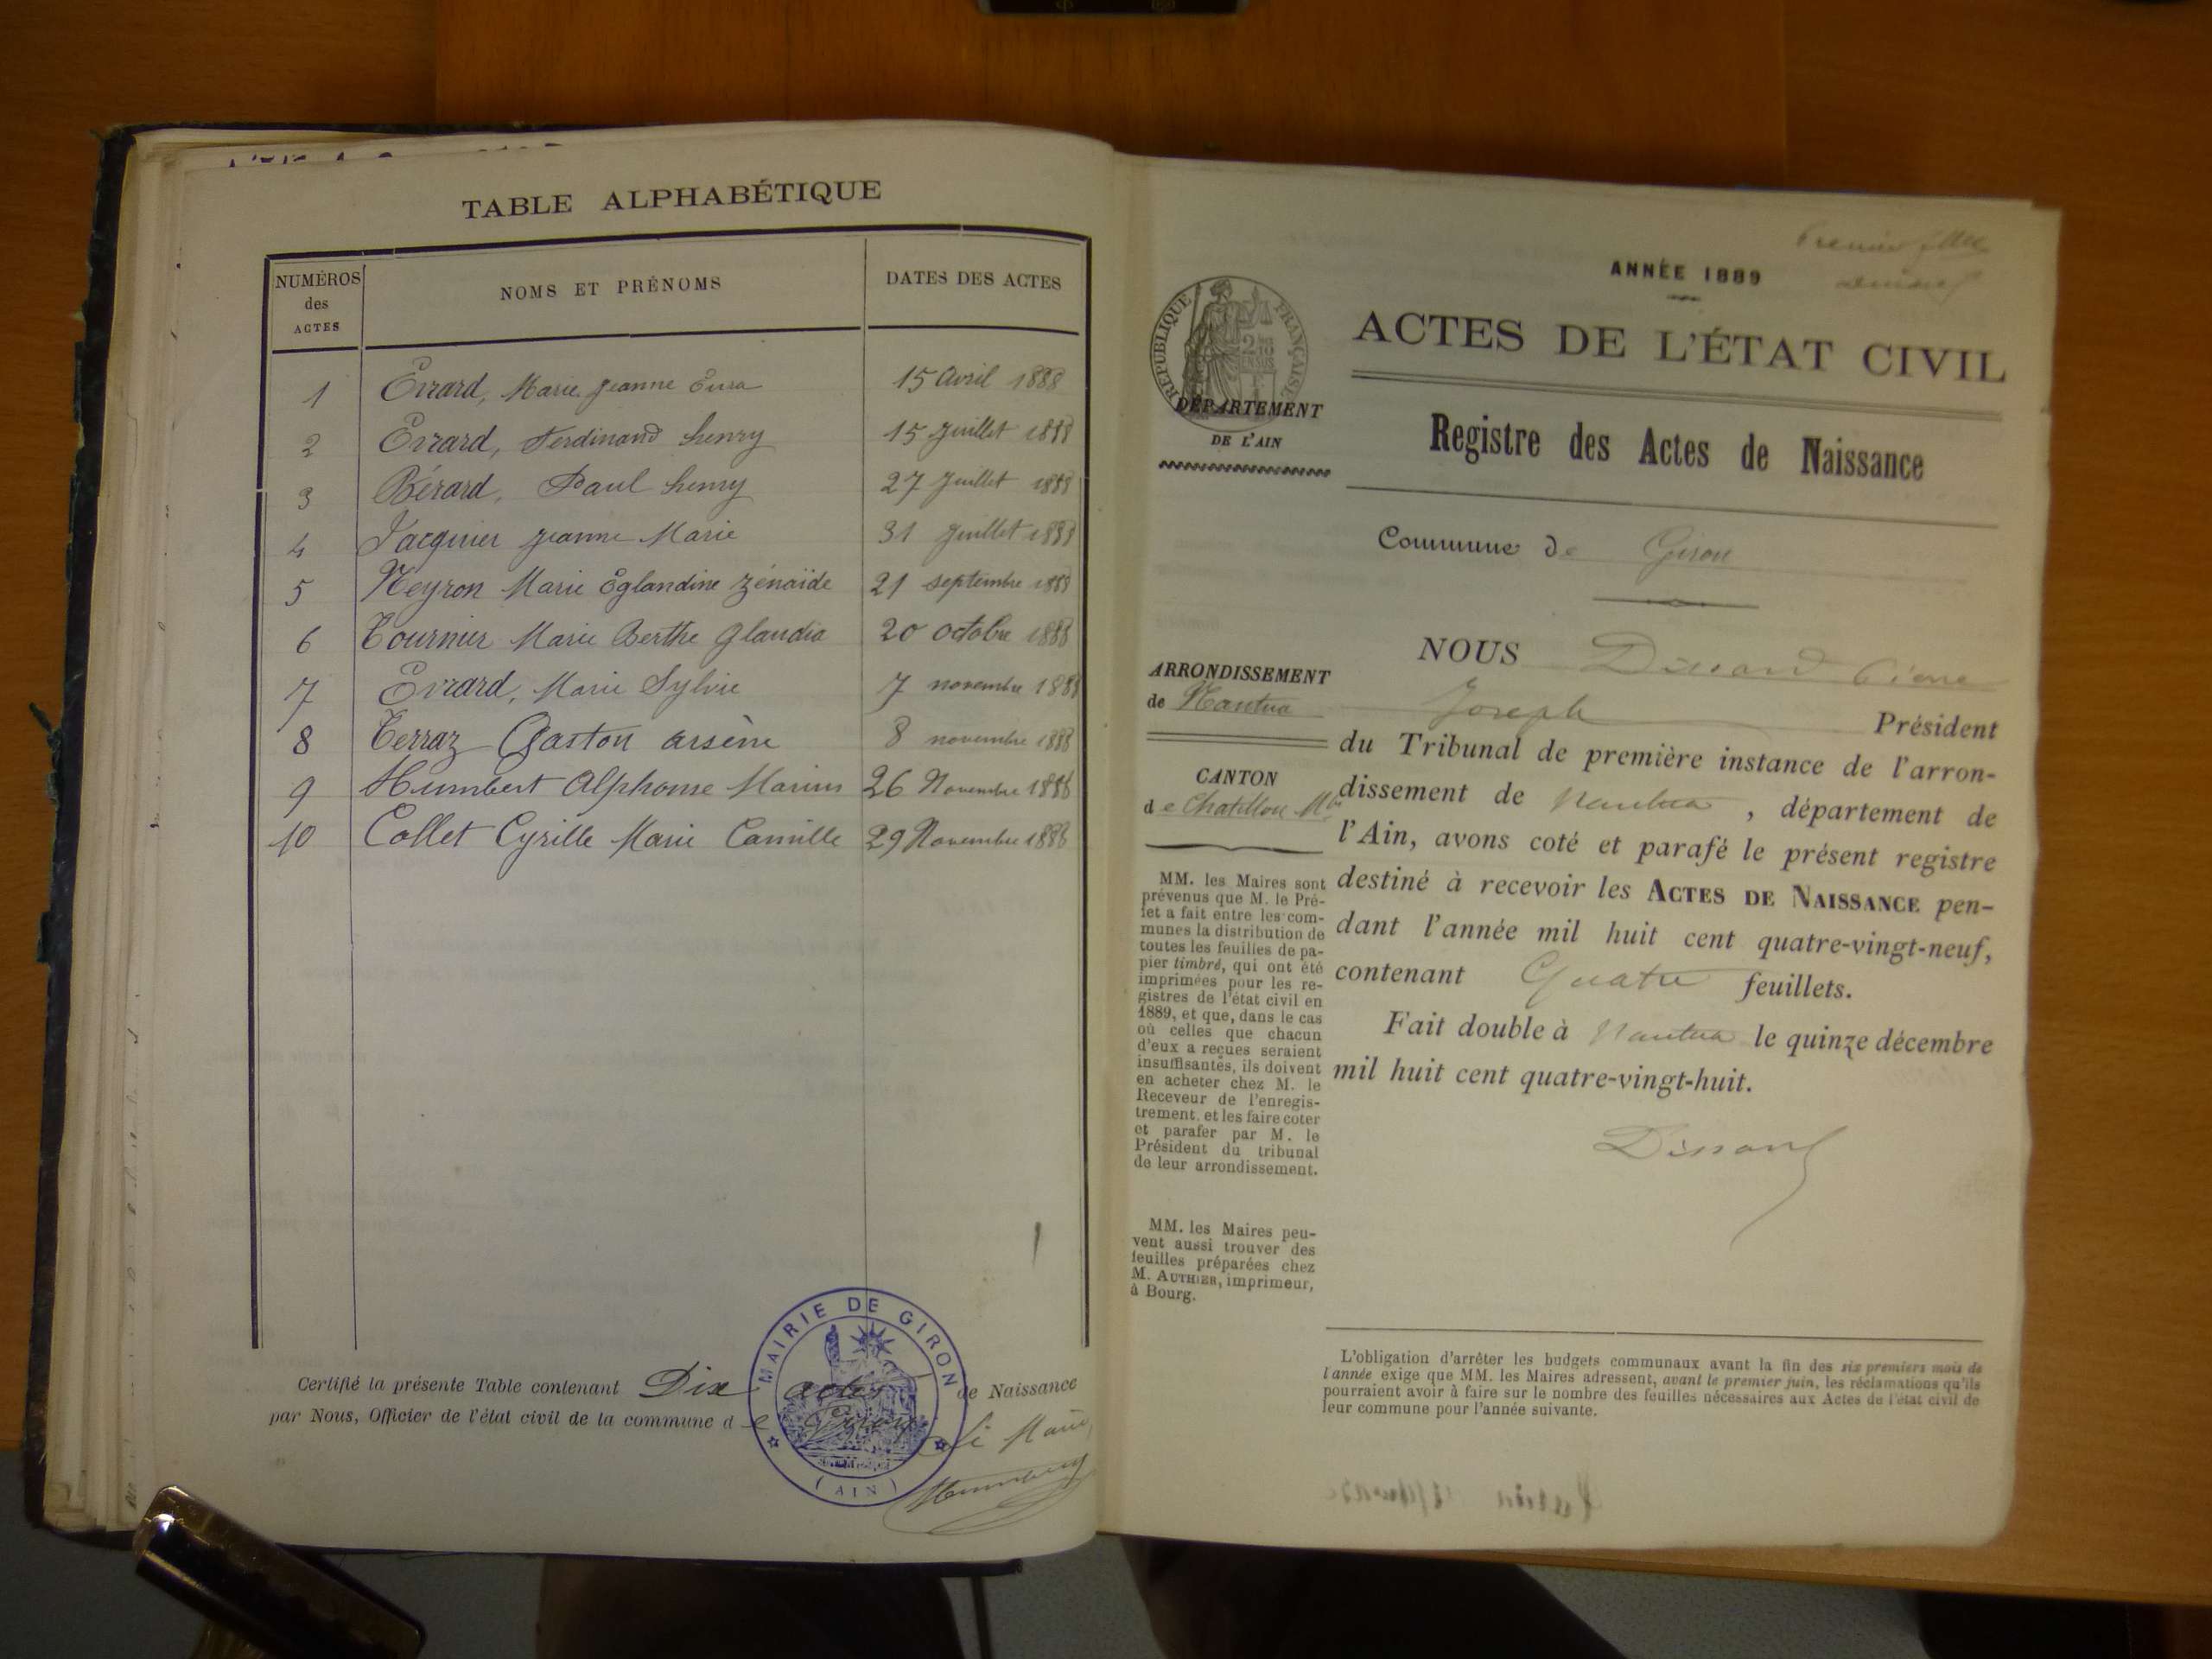 TABLE ALPHABÉTIQUE
NUMÉROS des ACTES | NOMS ET PRÉNOMS | DATES DES ACTES
1 Evrard, Marie Jeanne 15 Avril 1888
2 Evrard, Ferdinand henry 15 Juillet 1888
3 Bérard, Paul henry 27 Juillet 1888
4 Jacquier Jeanne Marie 31 Juillet 1888
5 Neyron Marie Eglandine Zénaïde 21 septembre 1888
6 Tournier Marie Berthe Glaudia 20 octobre 1888
7 Evrard, Marie Sylvie 7 novembre 1888
8 Terraz Gaston arsène 8 novembre 1888
9 Humbert Alphonse Marius 26 Novembre 1888
10 Collet Cyrille Marie Camille 29 Novembre 1888
Certifié la présente Table contenant Dix actes de Naissance
par Nous, Officier de l'état civil de la commune de Giron Le Maire,
Humbert
MAIRIE DE GIRON
(AIN)
ANNÉE 1889
RÉPUBLIQUE FRANÇAISE
ACTES DE L'ÉTAT CIVIL
DÉPARTEMENT
DE L'AIN
Registre des Actes de Naissance
Commune de Giron
ARRONDISSEMENT
de Nantua
CANTON
de Chatillon Mlle
MM. les Maires sont
prévenus que M. le Pré-
fet a fait entre les com-
munes la distribution de
toutes les feuilles de pa-
pier timbré, qui ont été
imprimées pour les re-
gistres de l'état civil en
1889, et que, dans le cas
où celles que chacun
d'eux a reçues seraient
insuffisantes, ils doivent
en acheter chez M. le
Receveur de l'enregis-
trement, et les faire coter
et parafer par M. le
Président du tribunal
de leur arrondissement.
MM. les Maires peu-
vent aussi trouver des
feuilles préparées chez
M. AUTHIER, imprimeur,
à Bourg.
NOUS Dissard Pierre
Joseph Président
du Tribunal de première instance de l'arron-
dissement de Nantua, département de
l'Ain, avons coté et parafé le présent registre
destiné à recevoir les ACTES DE NAISSANCE pen-
dant l'année mil huit cent quatre-vingt-neuf,
contenant Quatre feuillets.
Fait double à Nantua le quinze décembre
mil huit cent quatre-vingt-huit.
Dissard
L'obligation d'arrêter les budgets communaux avant la fin des six premiers mois de
l'année exige que MM. les Maires adressent, avant le premier juin, les réclamations qu'ils
pourraient avoir à faire sur le nombre des feuilles nécessaires aux Actes de l'état civil de
leur commune pour l'année suivante.